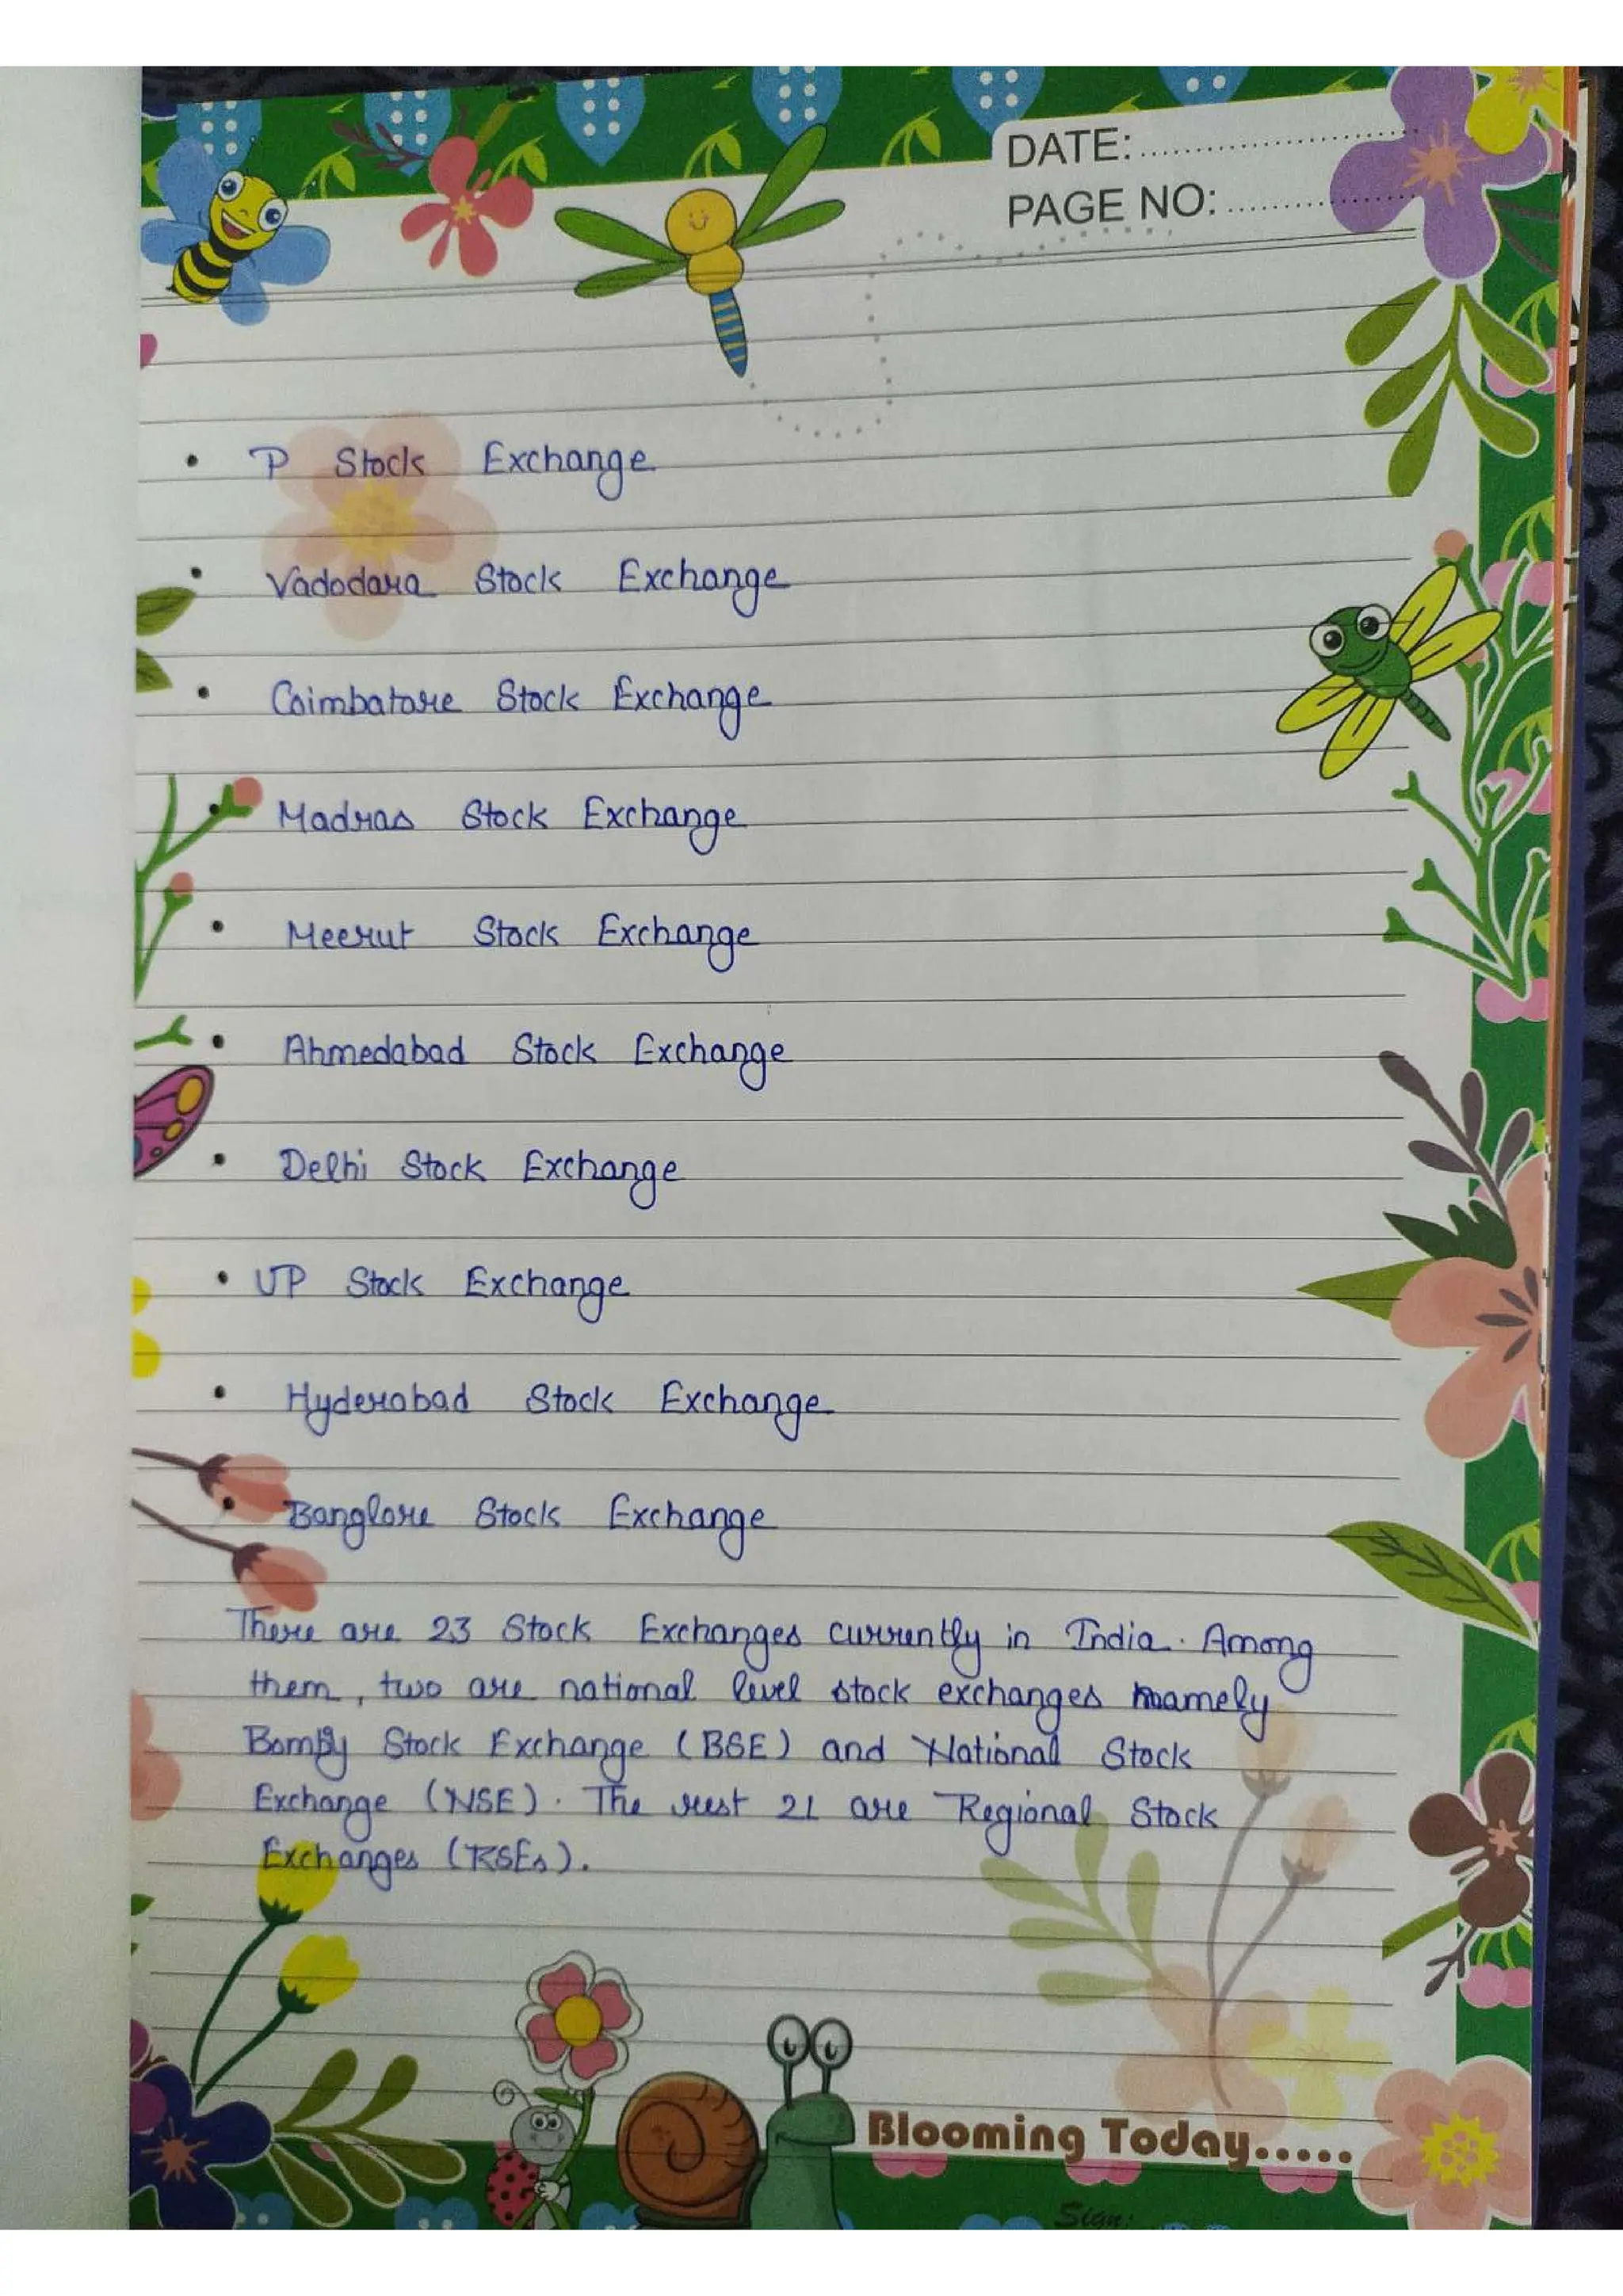 DATE:
PAGE NO:
• P Stock Exchange
• Vadodara Stock Exchange
• Coimbatore Stock Exchange
• Madras Stock Exchange
• Meerut Stock Exchange
• Ahmedabad Stock Exchange
• Delhi Stock Exchange
• UP Stock Exchange
• Hyderabad Stock Exchange
• Banglore Stock Exchange
There are 23 Stock Exchanges currently in India. Among
them, two are national level stock exchanges namely
Stock Exchange (BSE) and National Stock
Exchange (NSE). The rest 21 are Regional Stock
Exchanges (RSEs).
Blooming Today.....
Sign: